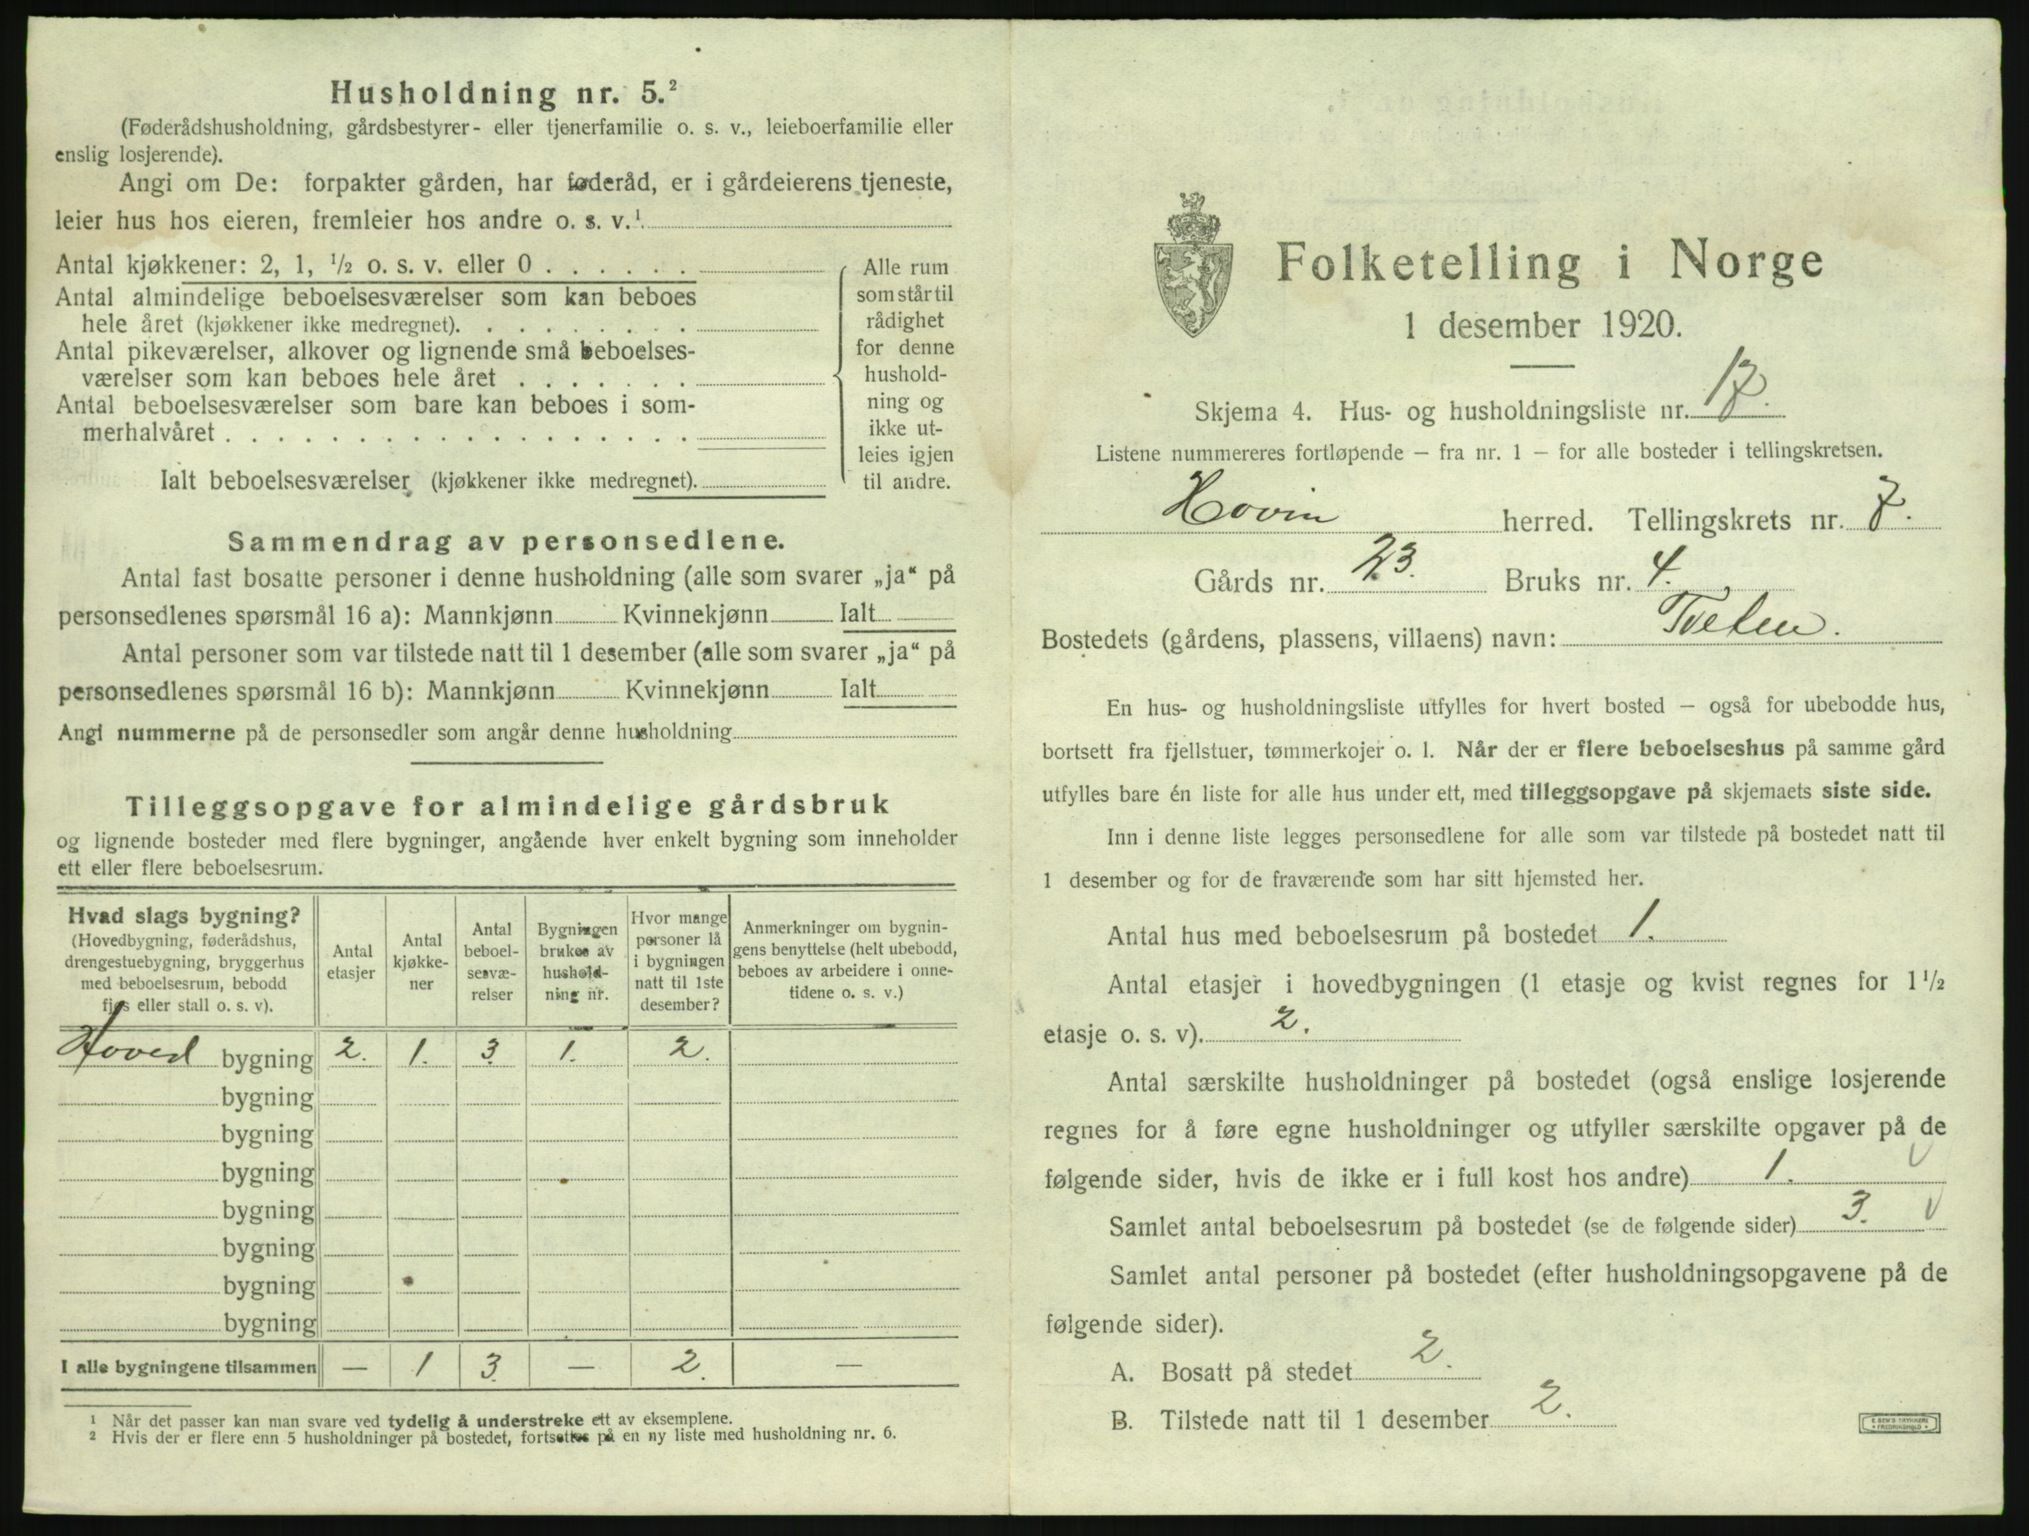 Husholdning nr. 5.²
(Føderådshusholdning, gårdsbestyrer- eller tjenerfamilie o. s. v., leieboerfamilie eller
enslig losjerende).
Angi om De: forpakter gården, har føderåd, er i gårdeierens tjeneste,
leier hus hos eieren, fremleier hos andre o. s. v.¹
Antal kjøkkener: 2, 1, ½ o. s. v. eller 0 . . . . . .
Antal almindelige beboelsesværelser som kan beboes
hele året (kjøkkener ikke medregnet). . . . . . . . .
Antal pikeværelser, alkover og lignende små beboelses-
værelser som kan beboes hele året . . . . . . .
Antal beboelsesværelser som bare kan beboes i som-
merhalvåret . . . . . . . . . . . . . . . . . .
Ialt beboelsesværelser (kjøkkener ikke medregnet).
Alle rum
som står til
rådighet
for denne
hushold-
ning og
ikke ut-
leies igjen
til andre.
Sammendrag av personsedlene.
Antal fast bosatte personer i denne husholdning (alle som svarer „ja“ på
personsedlenes spørsmål 16 a): Mannkjønn Kvinnekjønn Ialt
Antal personer som var tilstede natt til 1 desember (alle som svarer „ja“ på
personsedlenes spørsmål 16 b): Mannkjønn Kvinnekjønn Ialt
Angi nummerne på de personsedler som angår denne husholdning
Tilleggsopgave for almindelige gårdsbruk
og lignende bosteder med flere bygninger, angående hver enkelt bygning som inneholder
ett eller flere beboelsesrum.
Hvad slags bygning?
(Hovedbygning, føderådshus,
drengestuebygning, bryggerhus
med beboelsesrum, bebodd
fjøs eller stall o. s. v).
Antal
etasjer
Antal
kjøkke-
ner
Antal
beboel-
sesvæ-
relser
Bygningen
brukes av
hushold-
ning nr.
Hvor mange
personer lå
i bygningen
natt til 1ste
desember?
Anmerkninger om bygnin-
gens benyttelse (helt ubebodd,
beboes av arbeidere i onne-
tidene o. s. v.)
Hoved bygning 2. 1. 3. 1. 2.
bygning
bygning
bygning
bygning
bygning
bygning
bygning
I alle bygningene tilsammen — 1 3. — 2. —
¹ Når det passer kan man svare ved tydelig å understreke ett av eksemplene.
² Hvis der er flere enn 5 husholdninger på bostedet, fortsettes på en ny liste med husholdning nr. 6.
Folketelling i Norge
1 desember 1920.
Skjema 4. Hus- og husholdningsliste nr. 17.
Listene nummereres fortløpende — fra nr. 1 — for alle bosteder i tellingskretsen.
Hovin herred. Tellingskrets nr. 7.
Gårds nr. 23. Bruks nr. 4.
Bostedets (gårdens, plassens, villaens) navn: Tveten.
En hus- og husholdningsliste utfylles for hvert bosted — også for ubebodde hus,
bortsett fra fjellstuer, tømmerkojer o. l. Når der er flere beboelseshus på samme gård
utfylles bare én liste for alle hus under ett, med tilleggsopgave på skjemaets siste side.
Inn i denne liste legges personsedlene for alle som var tilstede på bostedet natt til
1 desember og for de fraværende som har sitt hjemsted her.
Antal hus med beboelsesrum på bostedet 1.
Antal etasjer i hovedbygningen (1 etasje og kvist regnes for 1½
etasje o. s. v). 2.
Antal særskilte husholdninger på bostedet (også enslige losjerende
regnes for å føre egne husholdninger og utfyller særskilte opgaver på de
følgende sider, hvis de ikke er i full kost hos andre) 1.
Samlet antal beboelsesrum på bostedet (se de følgende sider) 3.
Samlet antal personer på bostedet (efter husholdningsopgavene på de
følgende sider).
A. Bosatt på stedet 2.
B. Tilstede natt til 1 desember 2.